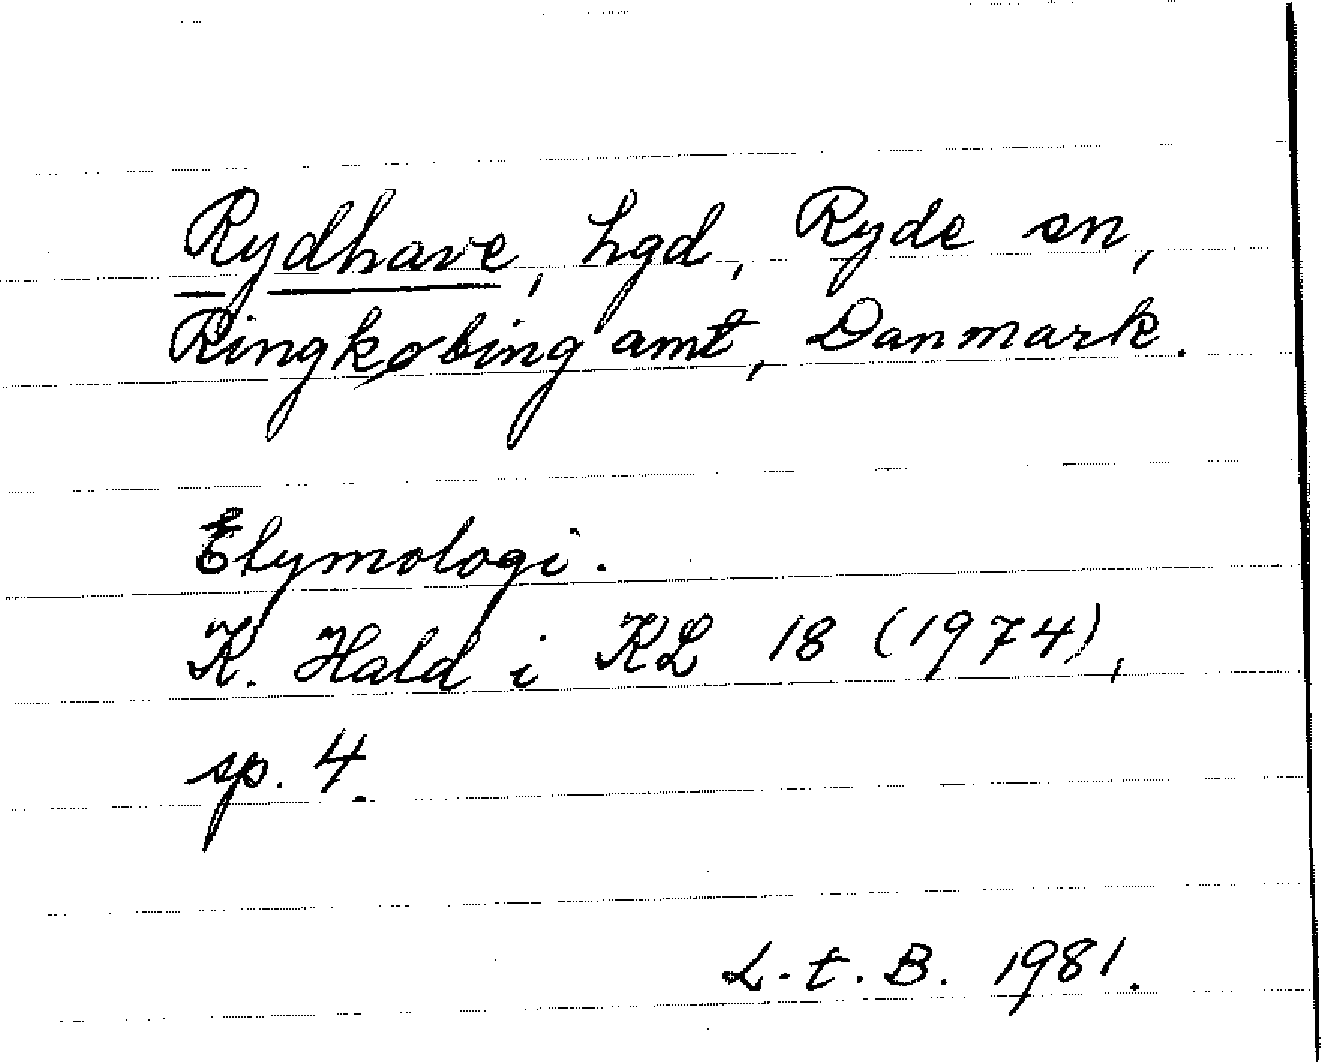 Rydhave, hgd, Ryde sn,
Ringkøbing amt, Danmark.
Etymologi.
K. Hald i KL 18 (1974),
sp. 4.
L.t.B. 1981.